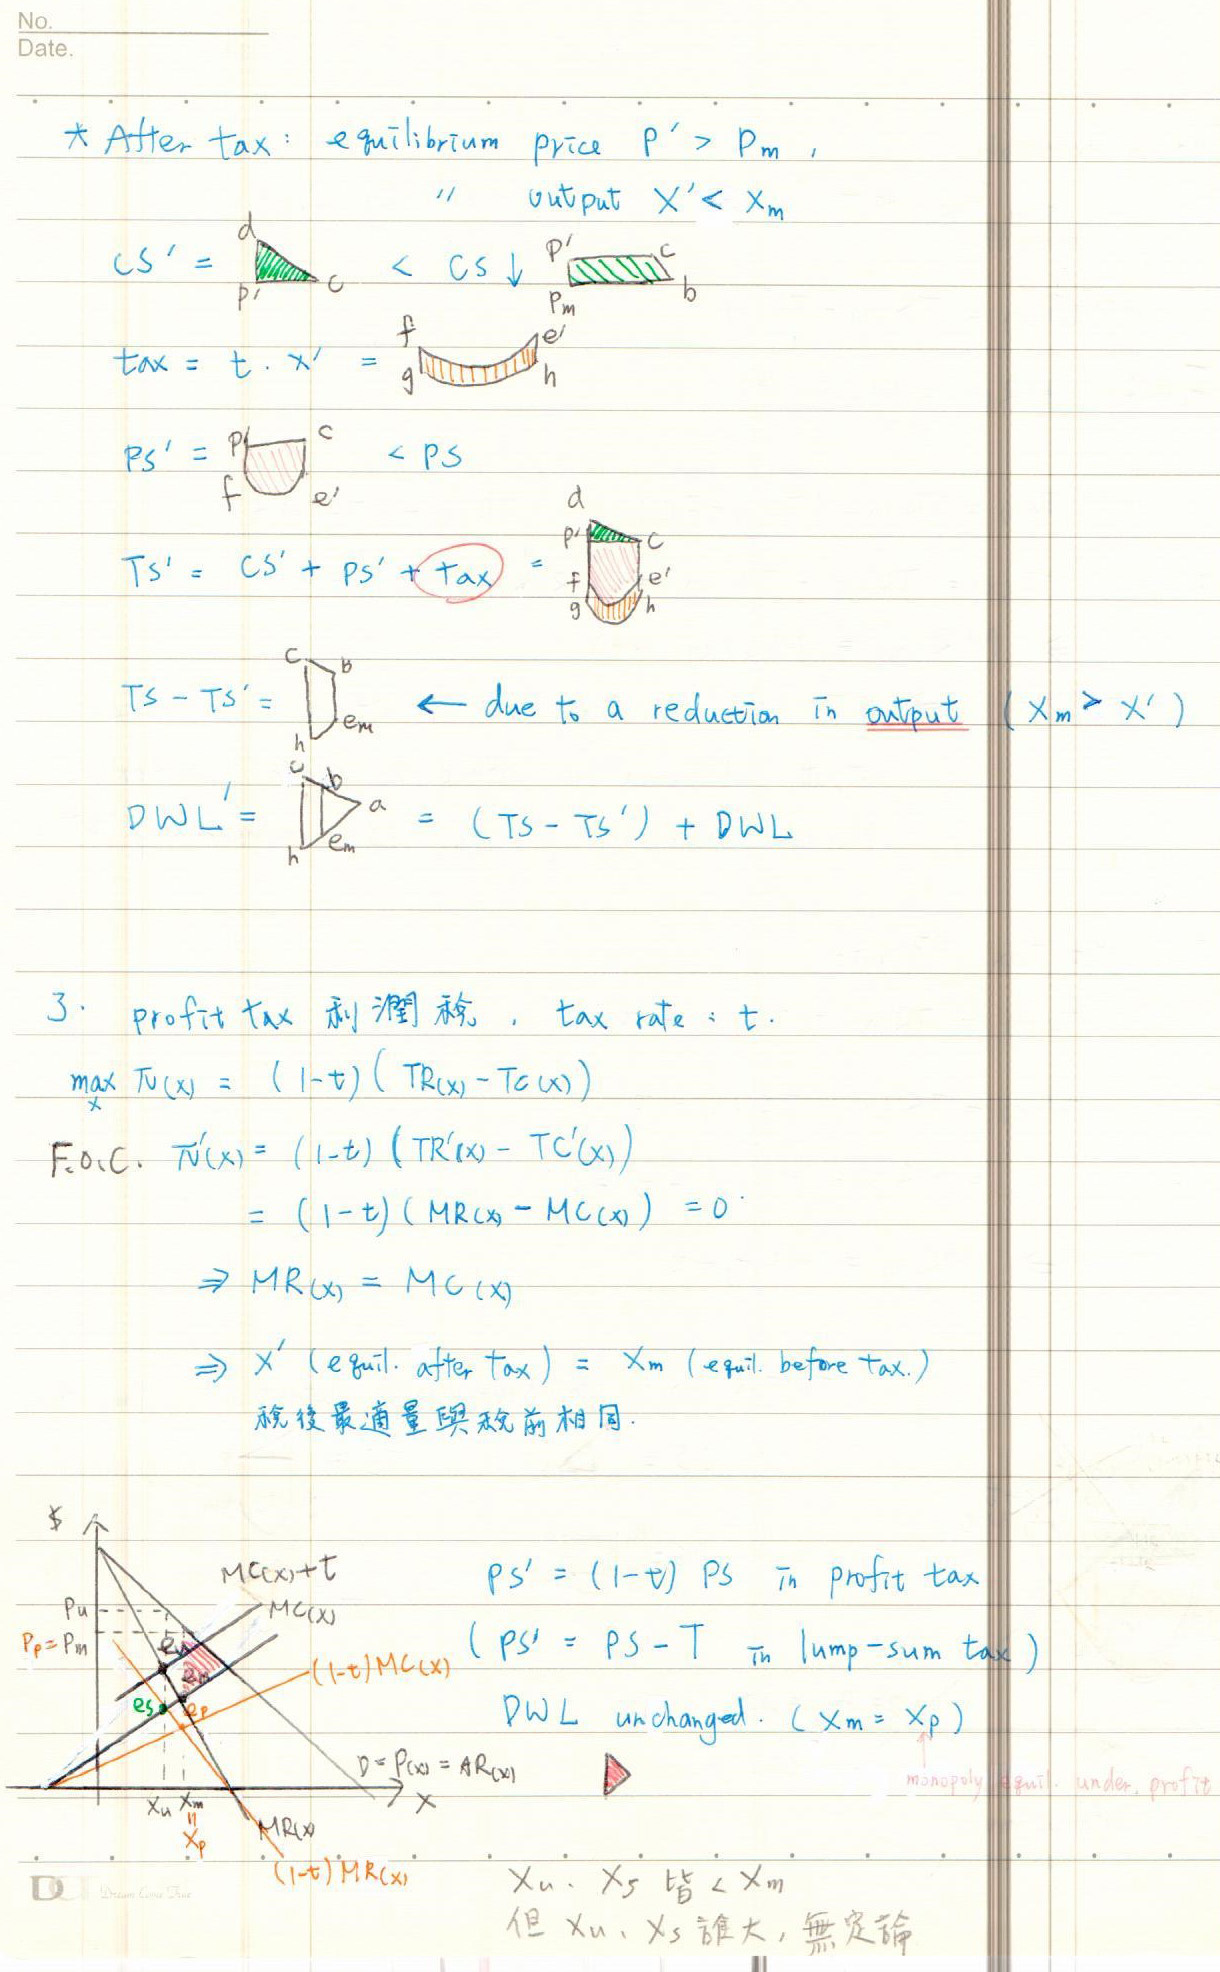 No.
Date.
* After tax : equilibrium price P' > Pm ,
" output X' < Xm
CS' = d P' c < CS ↓ P' c Pm b
tax = t . X' = f e' g h
PS' = P' c f e' < PS
TS' = CS' + PS' + tax = d P' c f e' g h
TS - TS' = c b em h ← due to a reduction in output ( Xm > X' )
DWL' = c b a h em = (TS - TS') + DWL
3. profit tax 利潤稅 , tax rate : t .
max x π(x) = (1-t) ( TR(x) - TC(x) )
F.O.C. π'(x) = (1-t) ( TR'(x) - TC'(x) )
= (1-t) ( MR(x) - MC(x) ) = 0
⇒ MR(x) = MC(x)
⇒ X' (equil. after tax) = Xm (equil. before tax.)
稅後最適量與稅前相同.
$
MC(x)+t
MC(x)
Pu
Pp = Pm
eu
em
(1-t)MC(x)
es
ep
D = P(x) = AR(x)
X
Xu Xm
=
Xp
MR(x)
(1-t)MR(x)
PS' = (1-t) PS in profit tax
( PS' = PS - T in lump-sum tax )
DWL unchanged. ( Xm = Xp )
monopoly equil. under. profit
Xu、Xs 皆 < Xm
但 Xu、Xs 誰大, 無定論